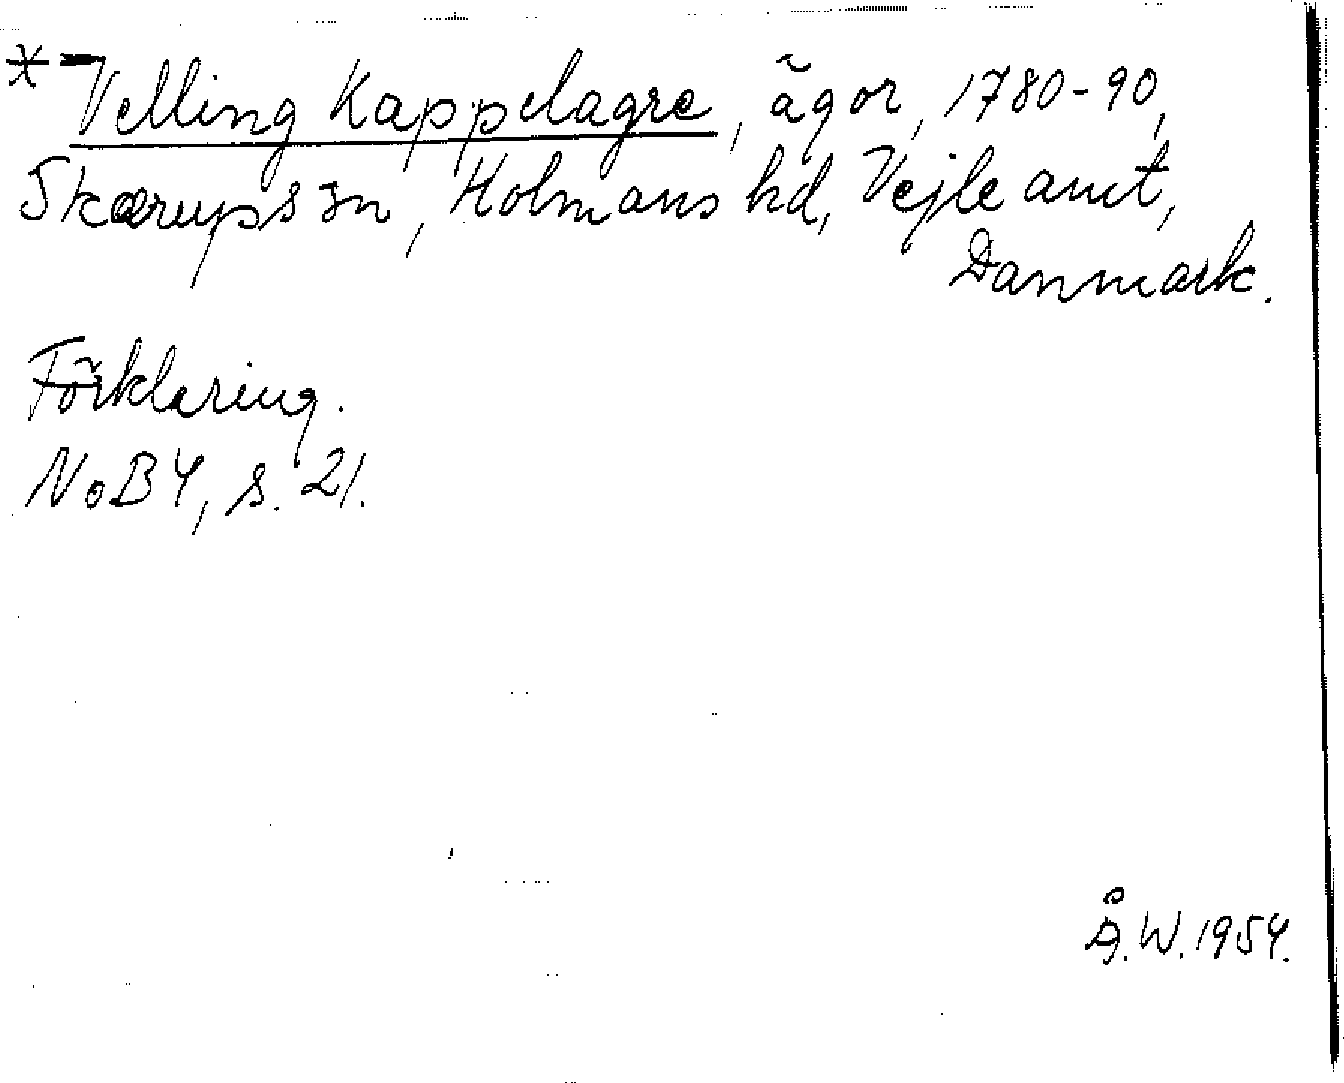 * Velling Kappelagre, ägor, 1780-90,
Skærups sn, Holmans hd, Vejle amt,
Danmark.
Förklaring.
NoB4, s. 21.
Å.W. 1954.